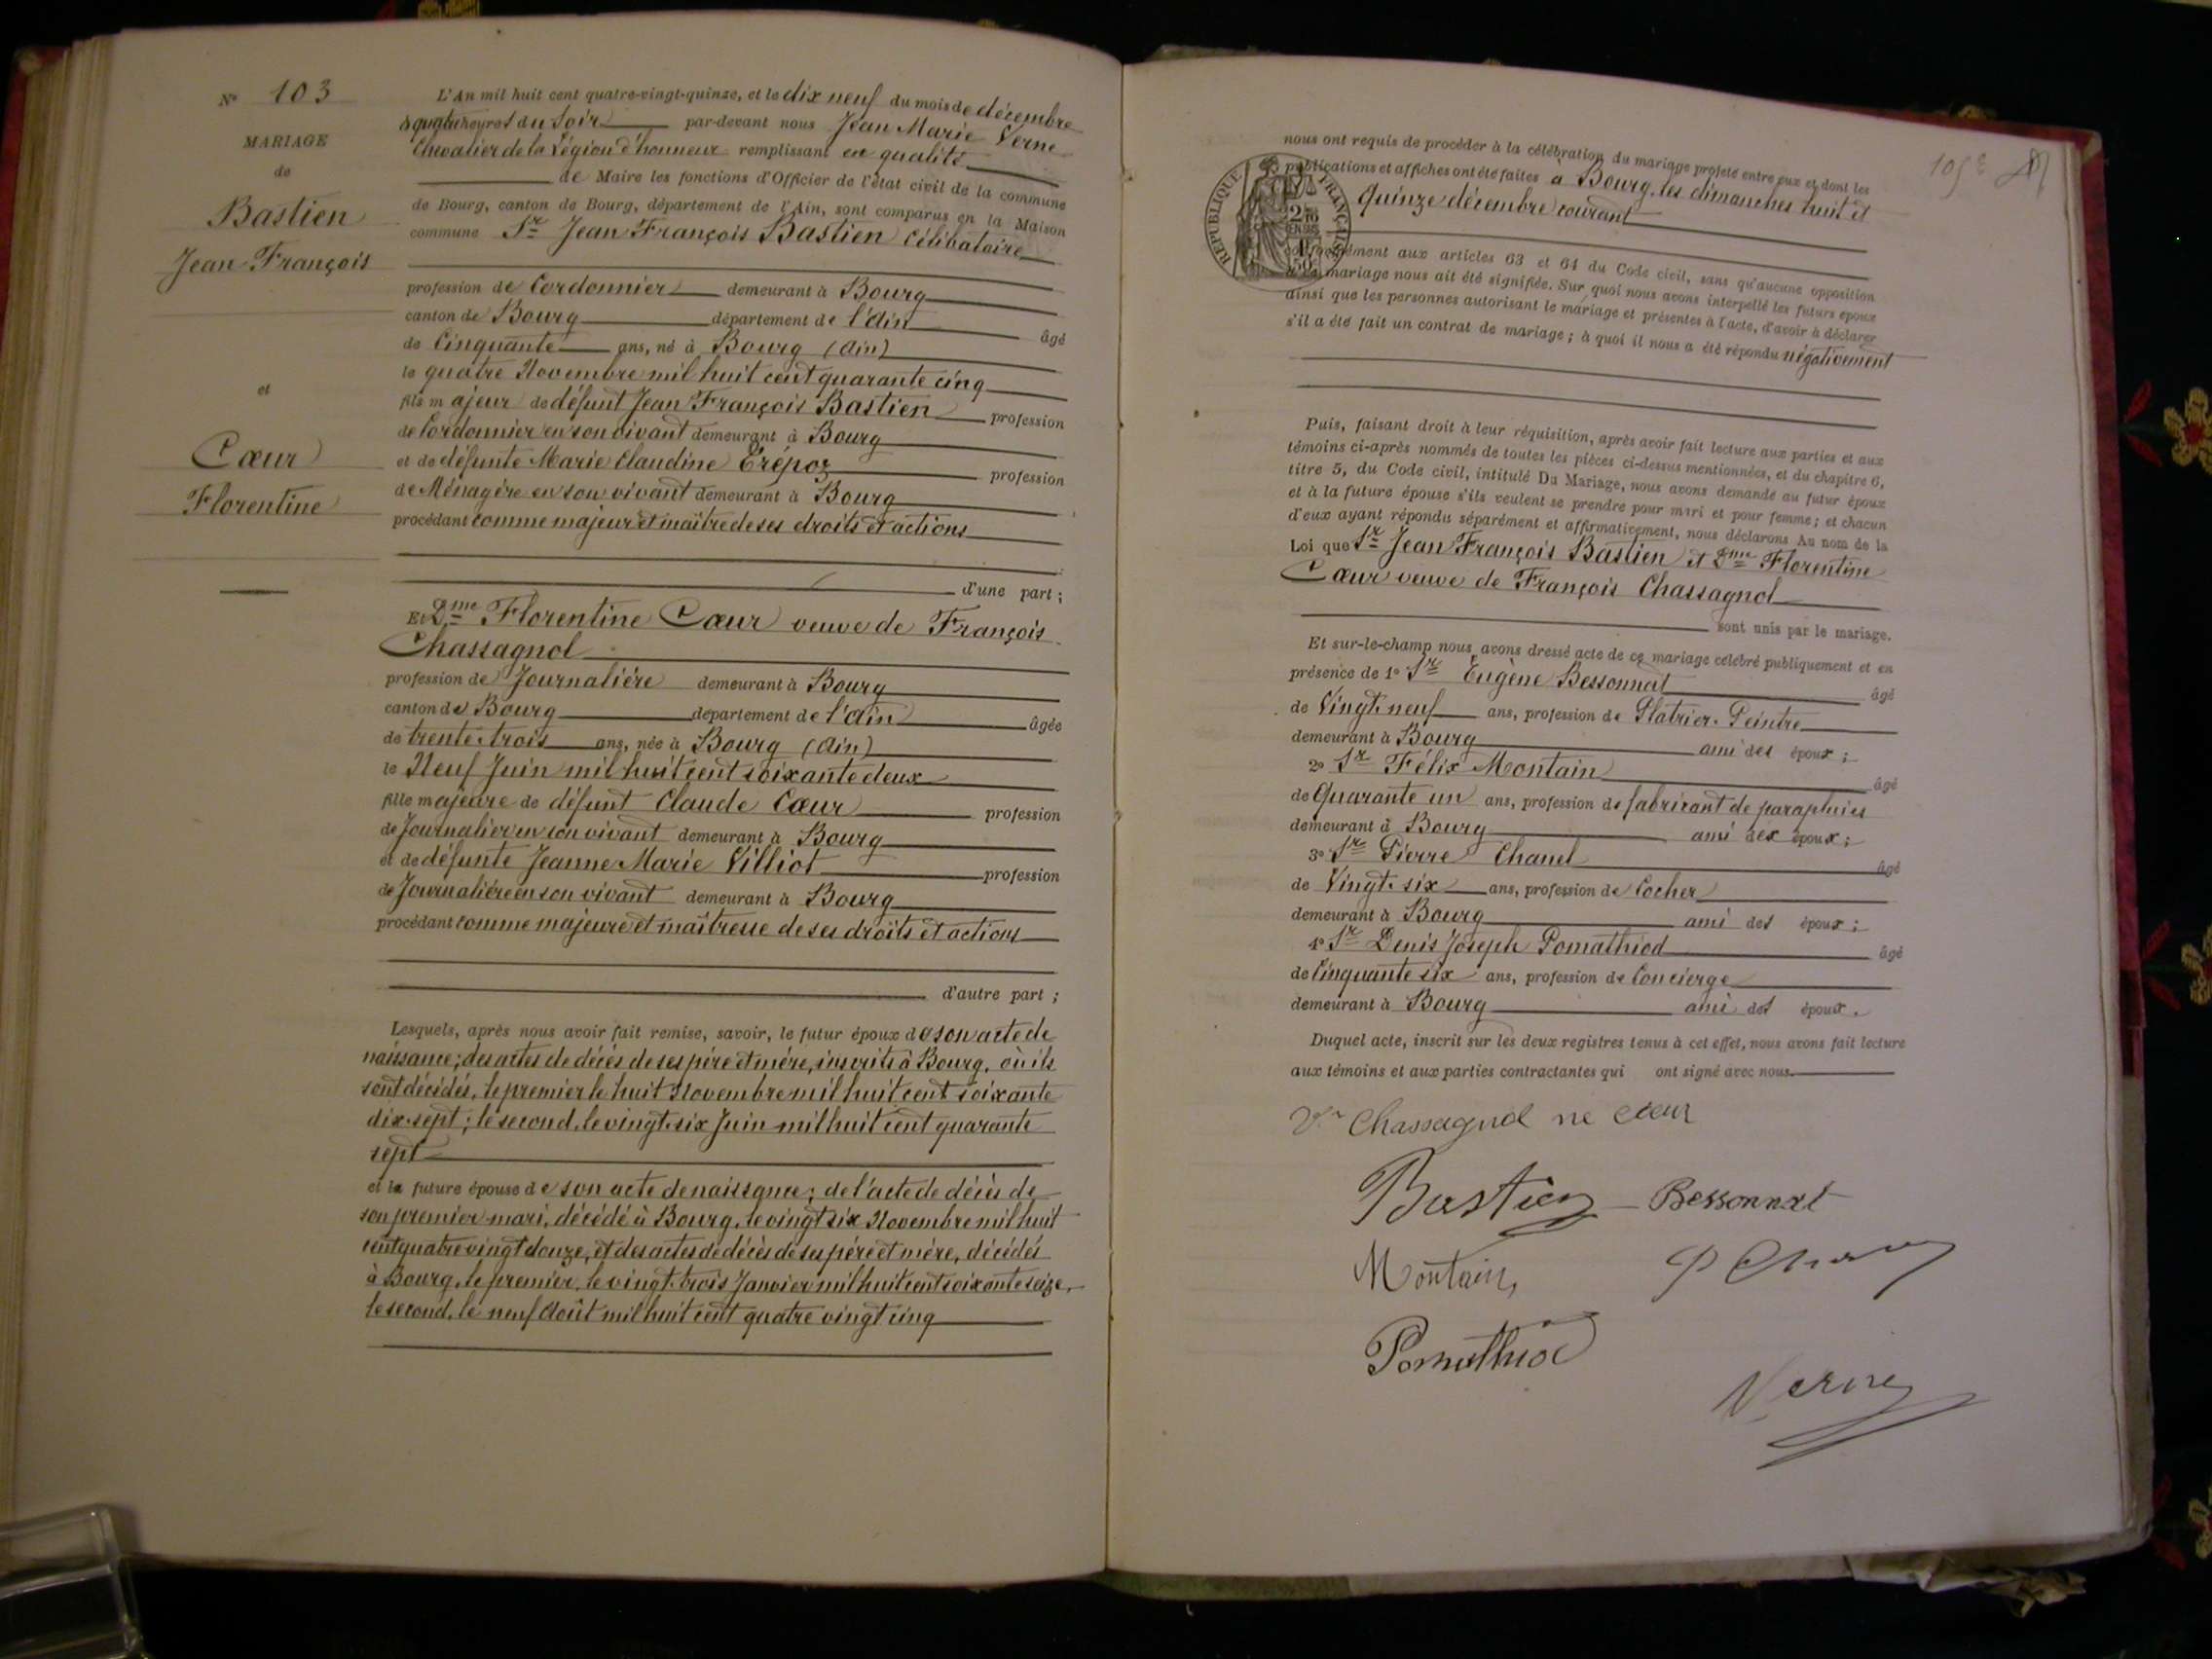 N° 103
MARIAGE
de
Bastien
Jean François
et
Cœur
Florentine
L'An mil huit cent quatre-vingt-quinze, et le dix neuf du mois de décembre
à quatre heures du soir par-devant nous Jean Marie Verne
Chevalier de la Légion d'honneur remplissant en qualité
de Maire les fonctions d'Officier de l'état civil de la commune
de Bourg, canton de Bourg, département de l'Ain, sont comparus en la Maison
commune Sr Jean François Bastien célibataire
profession de Cordonnier demeurant à Bourg
canton de Bourg département de l'Ain âgé
de Cinquante ans, né à Bourg (Ain)
le quatre Novembre mil huit cent quarante cinq
fils majeur de défunt Jean François Bastien profession
de Cordonnier en son vivant demeurant à Bourg
et de défunte Marie Claudine Trépoz profession
de Ménagère en son vivant demeurant à Bourg
procédant comme majeur et maître de ses droits et actions
d'une part ;
Et Dme Florentine Cœur veuve de François
Chassagnol
profession de Journalière demeurant à Bourg
canton de Bourg département de l'Ain âgée
de trente-trois ans, née à Bourg (Ain)
le Neuf Juin mil huit cent soixante deux
fille majeure de défunt Claude Cœur profession
de Journalier en son vivant demeurant à Bourg
et de défunte Jeanne Marie Villiot profession
de Journalière en son vivant demeurant à Bourg
procédant comme majeure et maîtresse de ses droits et actions
d'autre part ;
Lesquels, après nous avoir fait remise, savoir, le futur époux de son acte de
naissance ; des actes de décès de ses père et mère, inscrits à Bourg, où ils
sont décédés, le premier le huit Novembre mil huit cent soixante
dix-sept ; le second, le vingt-six Juin mil huit cent quarante
sept
et la future épouse de son acte de naissance ; de l'acte de décès de
son premier mari, décédé à Bourg, le vingt six Novembre mil huit
cent quatre vingt douze, et des actes de décès de ses père et mère, décédés
à Bourg, le premier, le vingt-trois Janvier mil huit cent soixante seize,
le second, le neuf Août mil huit cent quatre vingt cinq
105e
nous ont requis de procéder à la célébration du mariage projeté entre eux et dont les
publications et affiches ont été faites à Bourg, les dimanches huit et
quinze décembre courant
REPUBLIQUE FRANÇAISE
conformément aux articles 63 et 64 du Code civil, sans qu'aucune opposition
mariage nous ait été signifiée. Sur quoi nous avons interpellé les futurs époux
ainsi que les personnes autorisant le mariage et présentes à l'acte, d'avoir à déclarer
s'il a été fait un contrat de mariage ; à quoi il nous a été répondu négativement
Puis, faisant droit à leur réquisition, après avoir fait lecture aux parties et aux
témoins ci-après nommés de toutes les pièces ci-dessus mentionnées, et du chapitre 6,
titre 5, du Code civil, intitulé Du Mariage, nous avons demandé au futur époux
et à la future épouse s'ils veulent se prendre pour mari et pour femme ; et chacun
d'eux ayant répondu séparément et affirmativement, nous déclarons Au nom de la
Loi que Sr Jean François Bastien et Dme Florentine
Cœur veuve de François Chassagnol
sont unis par le mariage.
Et sur-le-champ nous avons dressé acte de ce mariage célébré publiquement et en
présence de 1° Sr Eugène Bessonnat âgé
de Vingt-neuf ans, profession de Platrier-Peintre
demeurant à Bourg ami des époux ;
2° Sr Félix Montain âgé
de Quarante un ans, profession de fabricant de parapluies
demeurant à Bourg ami des époux ;
3° Sr Pierre Chanel âgé
de Vingt-six ans, profession de Cocher
demeurant à Bourg ami des époux ;
4° Sr Denis Joseph Pomathiod âgé
de Cinquante six ans, profession de Concierge
demeurant à Bourg ami des époux.
Duquel acte, inscrit sur les deux registres tenus à cet effet, nous avons fait lecture
aux témoins et aux parties contractantes qui ont signé avec nous.
Ve Chassagnol ne cœur
Bastien Bessonnat
Montain
Pomathiod
Verne